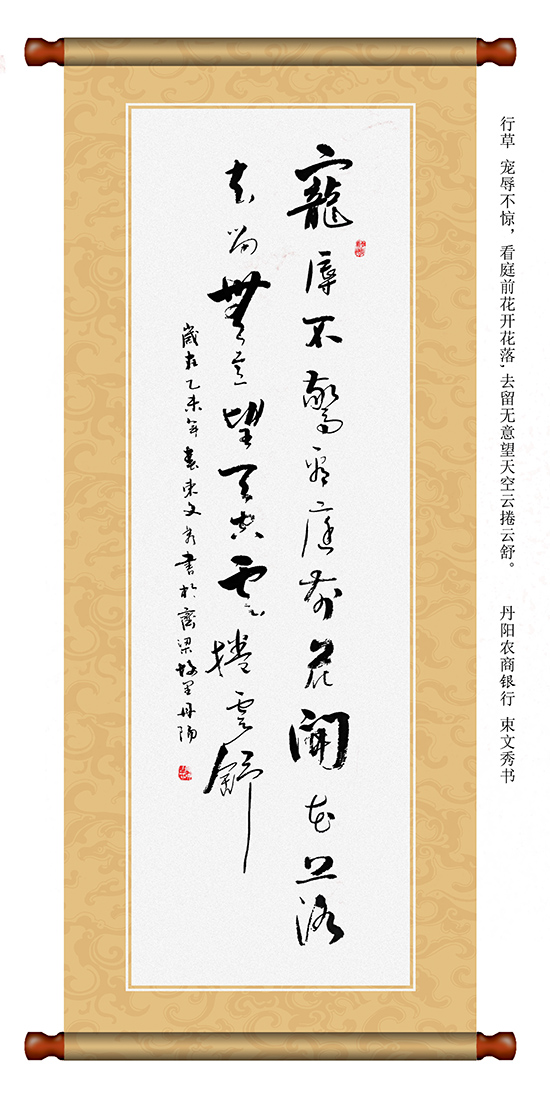 行草 宠辱不惊，看庭前花开花落,去留无意望天空云捲云舒。 丹阳农商银行 束文秀书
寵辱不驚看庭前花開花落
去留無意望天空雲捲雲舒
歲在乙未年春束文秀書於齊梁故里丹陽